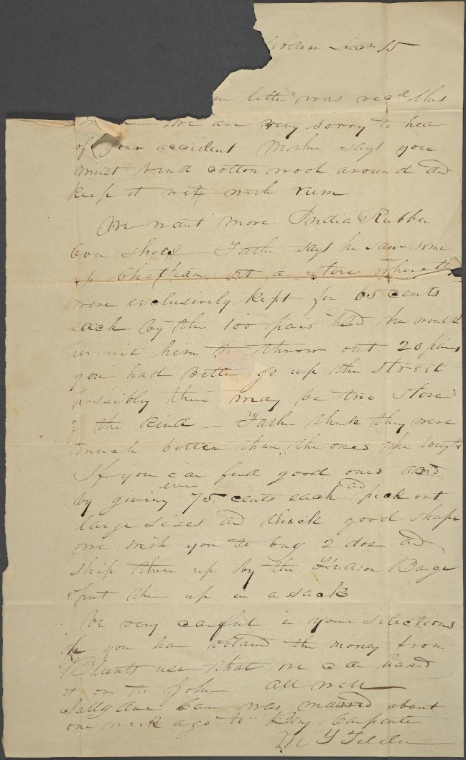 letter was recd this
we are very sorry to hear
of your accident Mother says you
must bind cotton wool around it and
keep it wet with rum
We want more India Rubber
Over shoes Father says he saw some
up Chatham at a store where they
were exclusively kept for 65 cents
each by the 100 pair and he would
permit him to throw out 20 pairs
you had better go up the street
possibly there may be two stores
of the kind Father thinks they were
much better than the ones you bought
If you can find good ones and
by giving even 75 cents each and pick out
large sizes and thick good shape
we wish you to buy 2 doz and
ship them up by the Hudson Barge
& put them up in a sack
Be very careful in your selections
if you have obtained the money from
use what we
to John All well
Sally Ann was married about
one week ago to Carpenter
Tilden